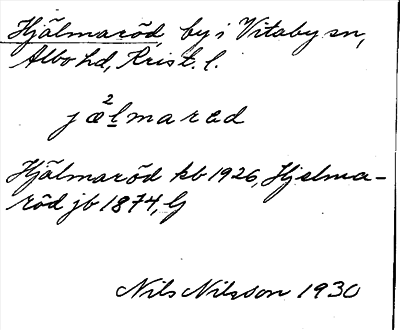 Hjälmaröd, by i Vitaby sn,
Albo hd, Krist. l.
jæ²lmarød
Hjälmaröd kb 1926, Hjelma-
röd jb 1874, G
Nils Nilsson 1930